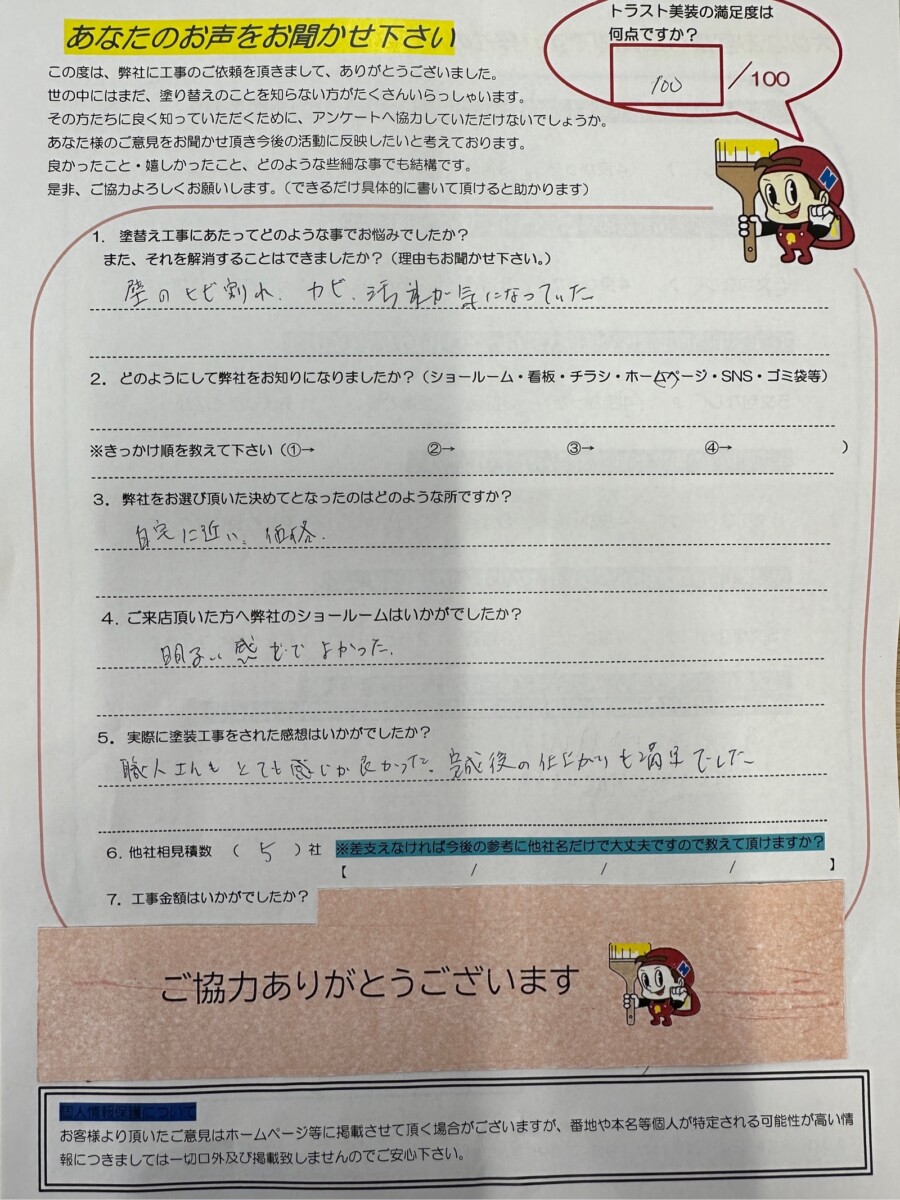 あなたのお声をお聞かせ下さい
トラスト美装の満足度は
何点ですか？
100／100
この度は、弊社に工事のご依頼を頂きまして、ありがとうございました。
世の中にはまだ、塗り替えのことを知らない方がたくさんいらっしゃいます。
その方たちに良く知っていただくために、アンケートへ協力していただけないでしょうか。
あなた様のご意見をお聞かせ頂き今後の活動に反映したいと考えております。
良かったこと・嬉しかったこと、どのような些細な事でも結構です。
是非、ご協力よろしくお願いします。（できるだけ具体的に書いて頂けると助かります）
1. 塗替え工事にあたってどのような事でお悩みでしたか？
また、それを解消することはできましたか？（理由もお聞かせ下さい。）
壁のヒビ割れ、カビ、汚れが気になっていた
2. どのようにして弊社をお知りになりましたか？（ショールーム・看板・チラシ・ホームページ・SNS・ゴミ袋等）
※きっかけ順を教えて下さい（①→ ②→ ③→ ④→ ）
3. 弊社をお選び頂いた決めてとなったのはどのような所ですか？
自宅に近い、価格、
4. ご来店頂いた方へ弊社のショールームはいかがでしたか？
明るい感じでよかった。
5. 実際に塗装工事をされた感想はいかがでしたか？
職人さんもとても感じが良かった。完成後の仕上がりも満足でした
6. 他社相見積数 （ 5 ）社 ※差支えなければ今後の参考に他社名だけで大丈夫ですので教えて頂けますか？
【 / / / 】
7. 工事金額はいかがでしたか？
ご協力ありがとうございます
個人情報保護について
お客様より頂いたご意見はホームページ等に掲載させて頂く場合がございますが、番地や本名等個人が特定される可能性が高い情
報につきましては一切口外及び掲載致しませんのでご安心下さい。